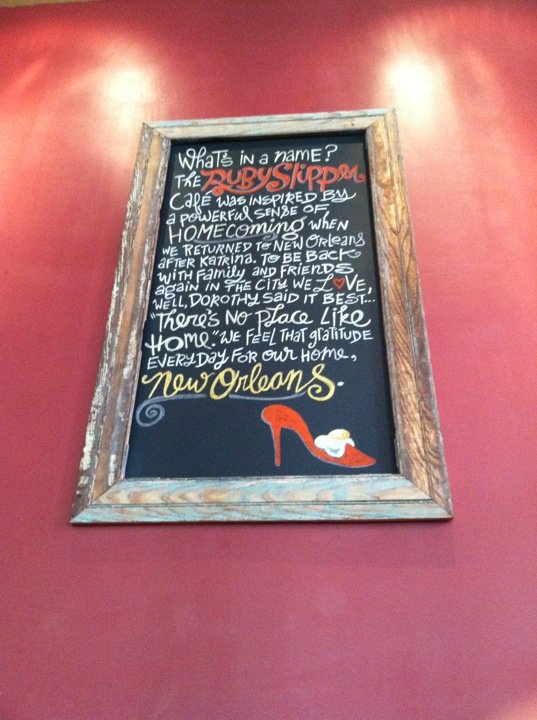 What's in a name?
The Ruby Slipper
Café was inspired by
a powerful sense of
Homecoming when
we returned to New Orleans
after Katrina. To be back
with family and friends
again in the city we L♥ve,
Well, Dorothy said it best...
"There's no place like
Home." We feel that gratitude
everyday for our home,
New Orleans.